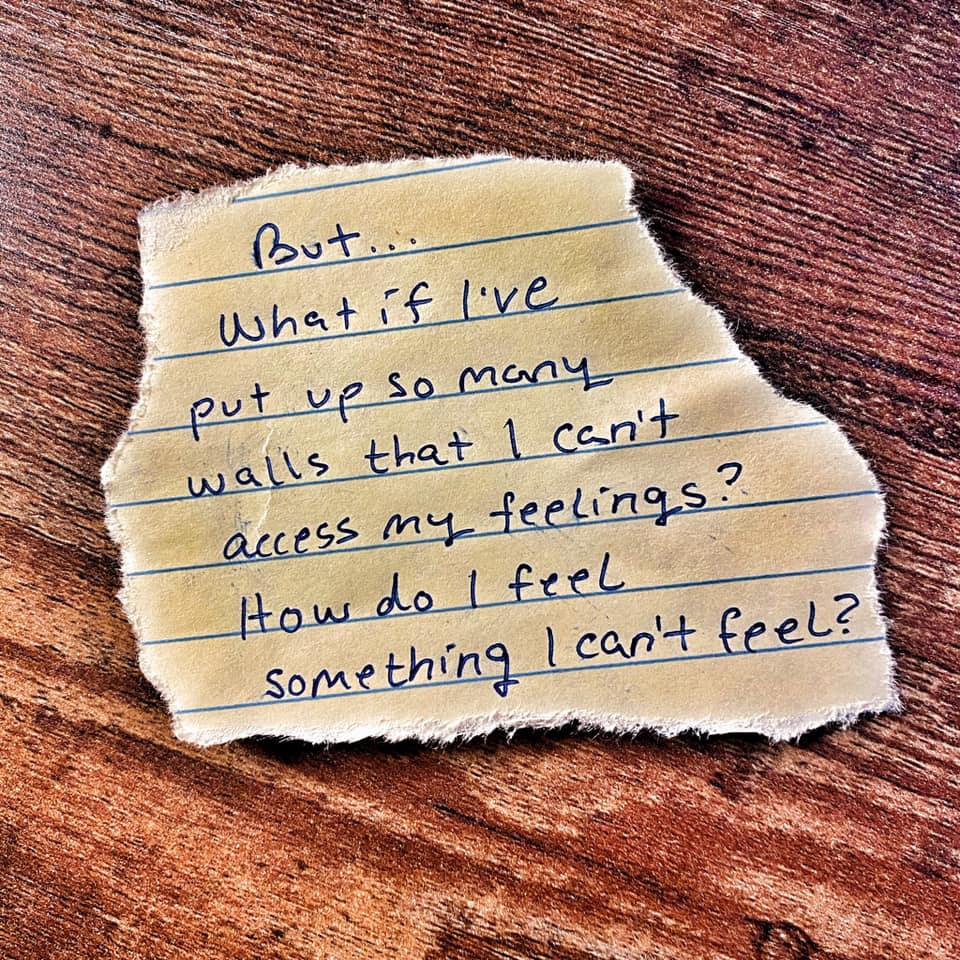 But...
What if I've
put up so many
walls that I can't
access my feelings?
How do I feel
something I can't feel?